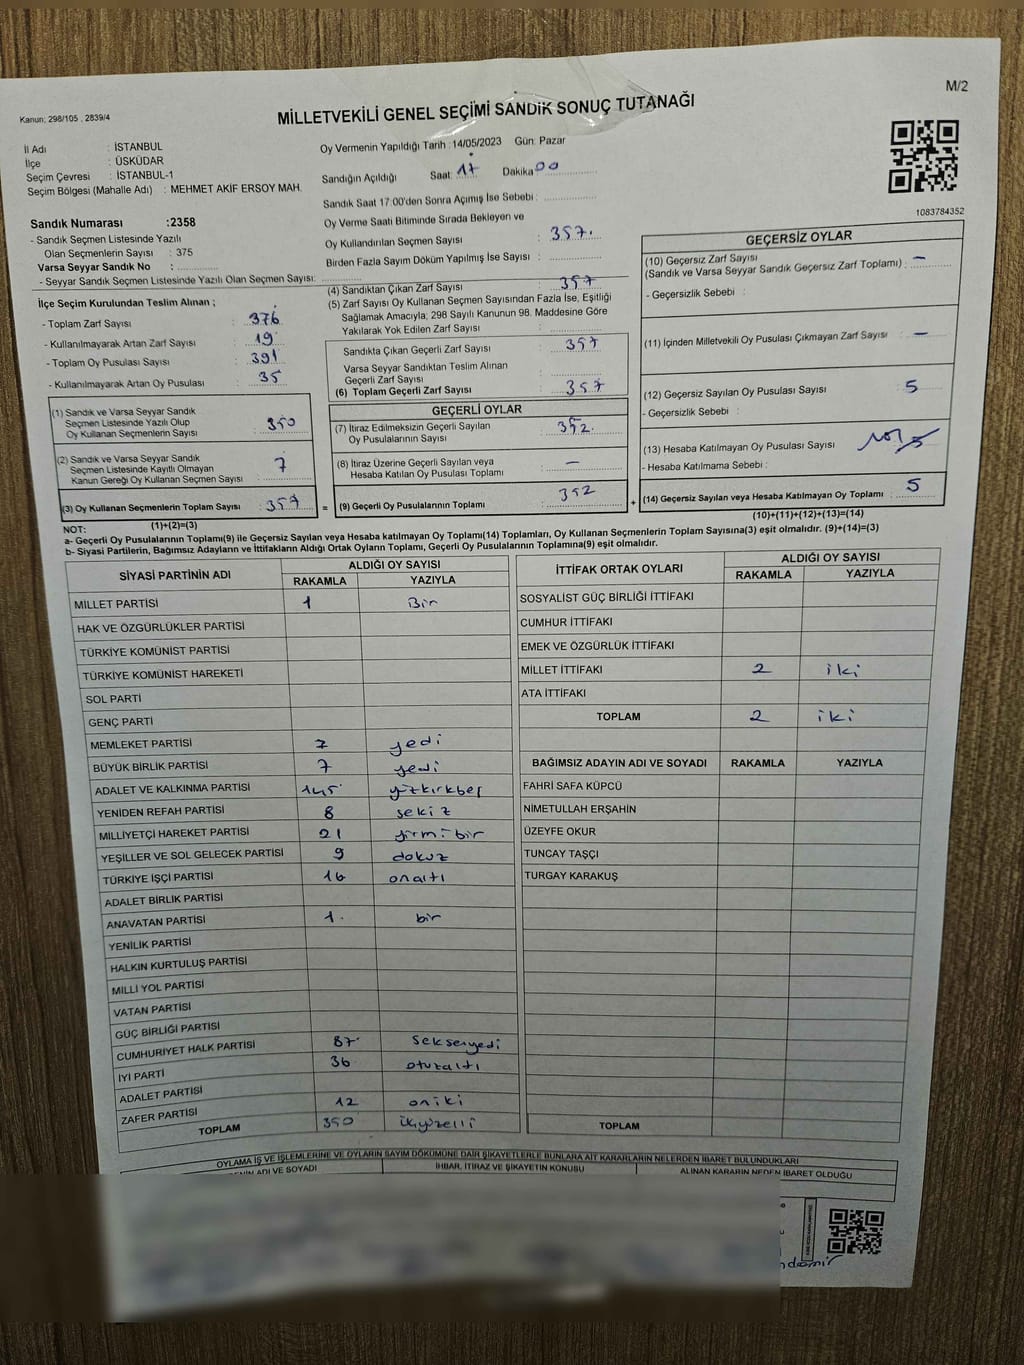 M/2
Kanun: 298/105 , 2839/4
MİLLETVEKİLİ GENEL SEÇİMİ SANDIK SONUÇ TUTANAĞI
İl Adı : İSTANBUL
İlçe : ÜSKÜDAR
Seçim Çevresi : İSTANBUL-1
Seçim Bölgesi (Mahalle Adı) : MEHMET AKİF ERSOY MAH.
Sandık Numarası :2358
- Sandık Seçmen Listesinde Yazılı
Olan Seçmenlerin Sayısı : 375
Varsa Seyyar Sandık No :
- Seyyar Sandık Seçmen Listesinde Yazılı Olan Seçmen Sayısı:
Oy Vermenin Yapıldığı Tarih :14/05/2023 Gün: Pazar
Sandığın Açıldığı Saat: 17 Dakika: 00
Sandık Saat 17:00'den Sonra Açımış İse Sebebi :
Oy Verme Saati Bitiminde Sırada Bekleyen ve
Oy Kullandırılan Seçmen Sayısı : 357.
Birden Fazla Sayım Döküm Yapılmış İse Sayısı :
1083784352
İlçe Seçim Kurulundan Teslim Alınan ;
- Toplam Zarf Sayısı : 376
- Kullanılmayarak Artan Zarf Sayısı : 19
- Toplam Oy Pusulası Sayısı : 391
- Kullanılmayarak Artan Oy Pusulası : 35
(1) Sandık ve Varsa Seyyar Sandık
Seçmen Listesinde Yazılı Olup
Oy Kullanan Seçmenlerin Sayısı : 350
(2) Sandık ve Varsa Seyyar Sandık
Seçmen Listesinde Kayıtlı Olmayan
Kanun Gereği Oy Kullanan Seçmen Sayısı : 7
(3) Oy Kullanan Seçmenlerin Toplam Sayısı : 357 =
(1)+(2)=(3)
(4) Sandıktan Çıkan Zarf Sayısı : 357
(5) Zarf Sayısı Oy Kullanan Seçmen Sayısından Fazla İse, Eşitliği
Sağlamak Amacıyla; 298 Sayılı Kanunun 98. Maddesine Göre
Yakılarak Yok Edilen Zarf Sayısı :
Sandıkta Çıkan Geçerli Zarf Sayısı : 357
Varsa Seyyar Sandıktan Teslim Alınan
Geçerli Zarf Sayısı :
(6) Toplam Geçerli Zarf Sayısı : 357
GEÇERLİ OYLAR
(7) İtiraz Edilmeksizin Geçerli Sayılan
Oy Pusulalarının Sayısı : 352.
(8) İtiraz Üzerine Geçerli Sayılan veya
Hesaba Katılan Oy Pusulası Toplamı : —
(9) Geçerli Oy Pusulalarının Toplamı : 352 +
GEÇERSİZ OYLAR
(10) Geçersiz Zarf Sayısı
(Sandık ve Varsa Seyyar Sandık Geçersiz Zarf Toplamı) : —
- Geçersizlik Sebebi :
(11) İçinden Milletvekili Oy Pusulası Çıkmayan Zarf Sayısı : —
(12) Geçersiz Sayılan Oy Pusulası Sayısı : 5
- Geçersizlik Sebebi :
(13) Hesaba Katılmayan Oy Pusulası Sayısı :
- Hesaba Katılmama Sebebi :
(14) Geçersiz Sayılan veya Hesaba Katılmayan Oy Toplamı : 5
(10)+(11)+(12)+(13)=(14)
NOT:
a- Geçerli Oy Pusulalarının Toplamı(9) ile Geçersiz Sayılan veya Hesaba Katılmayan Oy Toplamı(14) Toplamları, Oy Kullanan Seçmenlerin Toplam Sayısına(3) eşit olmalıdır. (9)+(14)=(3)
b- Siyasi Partilerin, Bağımsız Adayların ve İttifakların Aldığı Ortak Oyların Toplamı, Geçerli Oy Pusulalarının Toplamına(9) eşit olmalıdır.
SİYASİ PARTİNİN ADI ALDIĞI OY SAYISI
RAKAMLA YAZIYLA
MİLLET PARTİSİ 1 Bir
HAK VE ÖZGÜRLÜKLER PARTİSİ
TÜRKİYE KOMÜNİST PARTİSİ
TÜRKİYE KOMÜNİST HAREKETİ
SOL PARTİ
GENÇ PARTİ
MEMLEKET PARTİSİ 7 yedi
BÜYÜK BİRLİK PARTİSİ 7 yedi
ADALET VE KALKINMA PARTİSİ 145 yüzkırkbeş
YENİDEN REFAH PARTİSİ 8 sekiz
MİLLİYETÇİ HAREKET PARTİSİ 21 yirmibir
YEŞİLLER VE SOL GELECEK PARTİSİ 9 dokuz
TÜRKİYE İŞÇİ PARTİSİ 16 onaltı
ADALET BİRLİK PARTİSİ
ANAVATAN PARTİSİ 1. bir
YENİLİK PARTİSİ
HALKIN KURTULUŞ PARTİSİ
MİLLİ YOL PARTİSİ
VATAN PARTİSİ
GÜÇ BİRLİĞİ PARTİSİ
CUMHURİYET HALK PARTİSİ 87 seksenyedi
İYİ PARTİ 36 otuzaltı
ADALET PARTİSİ
ZAFER PARTİSİ 12 oniki
TOPLAM 350 ikiyüzelli
İTTİFAK ORTAK OYLARI ALDIĞI OY SAYISI
RAKAMLA YAZIYLA
SOSYALİST GÜÇ BİRLİĞİ İTTİFAKI
CUMHUR İTTİFAKI
EMEK VE ÖZGÜRLÜK İTTİFAKI
MİLLET İTTİFAKI 2 iki
ATA İTTİFAKI
TOPLAM 2 iki
BAĞIMSIZ ADAYIN ADI VE SOYADI RAKAMLA YAZIYLA
FAHRİ SAFA KÜPCÜ
NİMETULLAH ERŞAHİN
ÜZEYFE OKUR
TUNCAY TAŞÇI
TURGAY KARAKUŞ
TOPLAM
OYLAMA İŞ VE İŞLEMLERİNE VE OYLARIN SAYIM DÖKÜMÜNE DAİR ŞİKAYETLERLE BUNLARA AİT KARARLARIN NELERDEN İBARET BULUNDUKLARI
ADI VE SOYADI İHBAR, İTİRAZ VE ŞİKAYETİN KONUSU ALINAN KARARIN NEDEN İBARET OLDUĞU